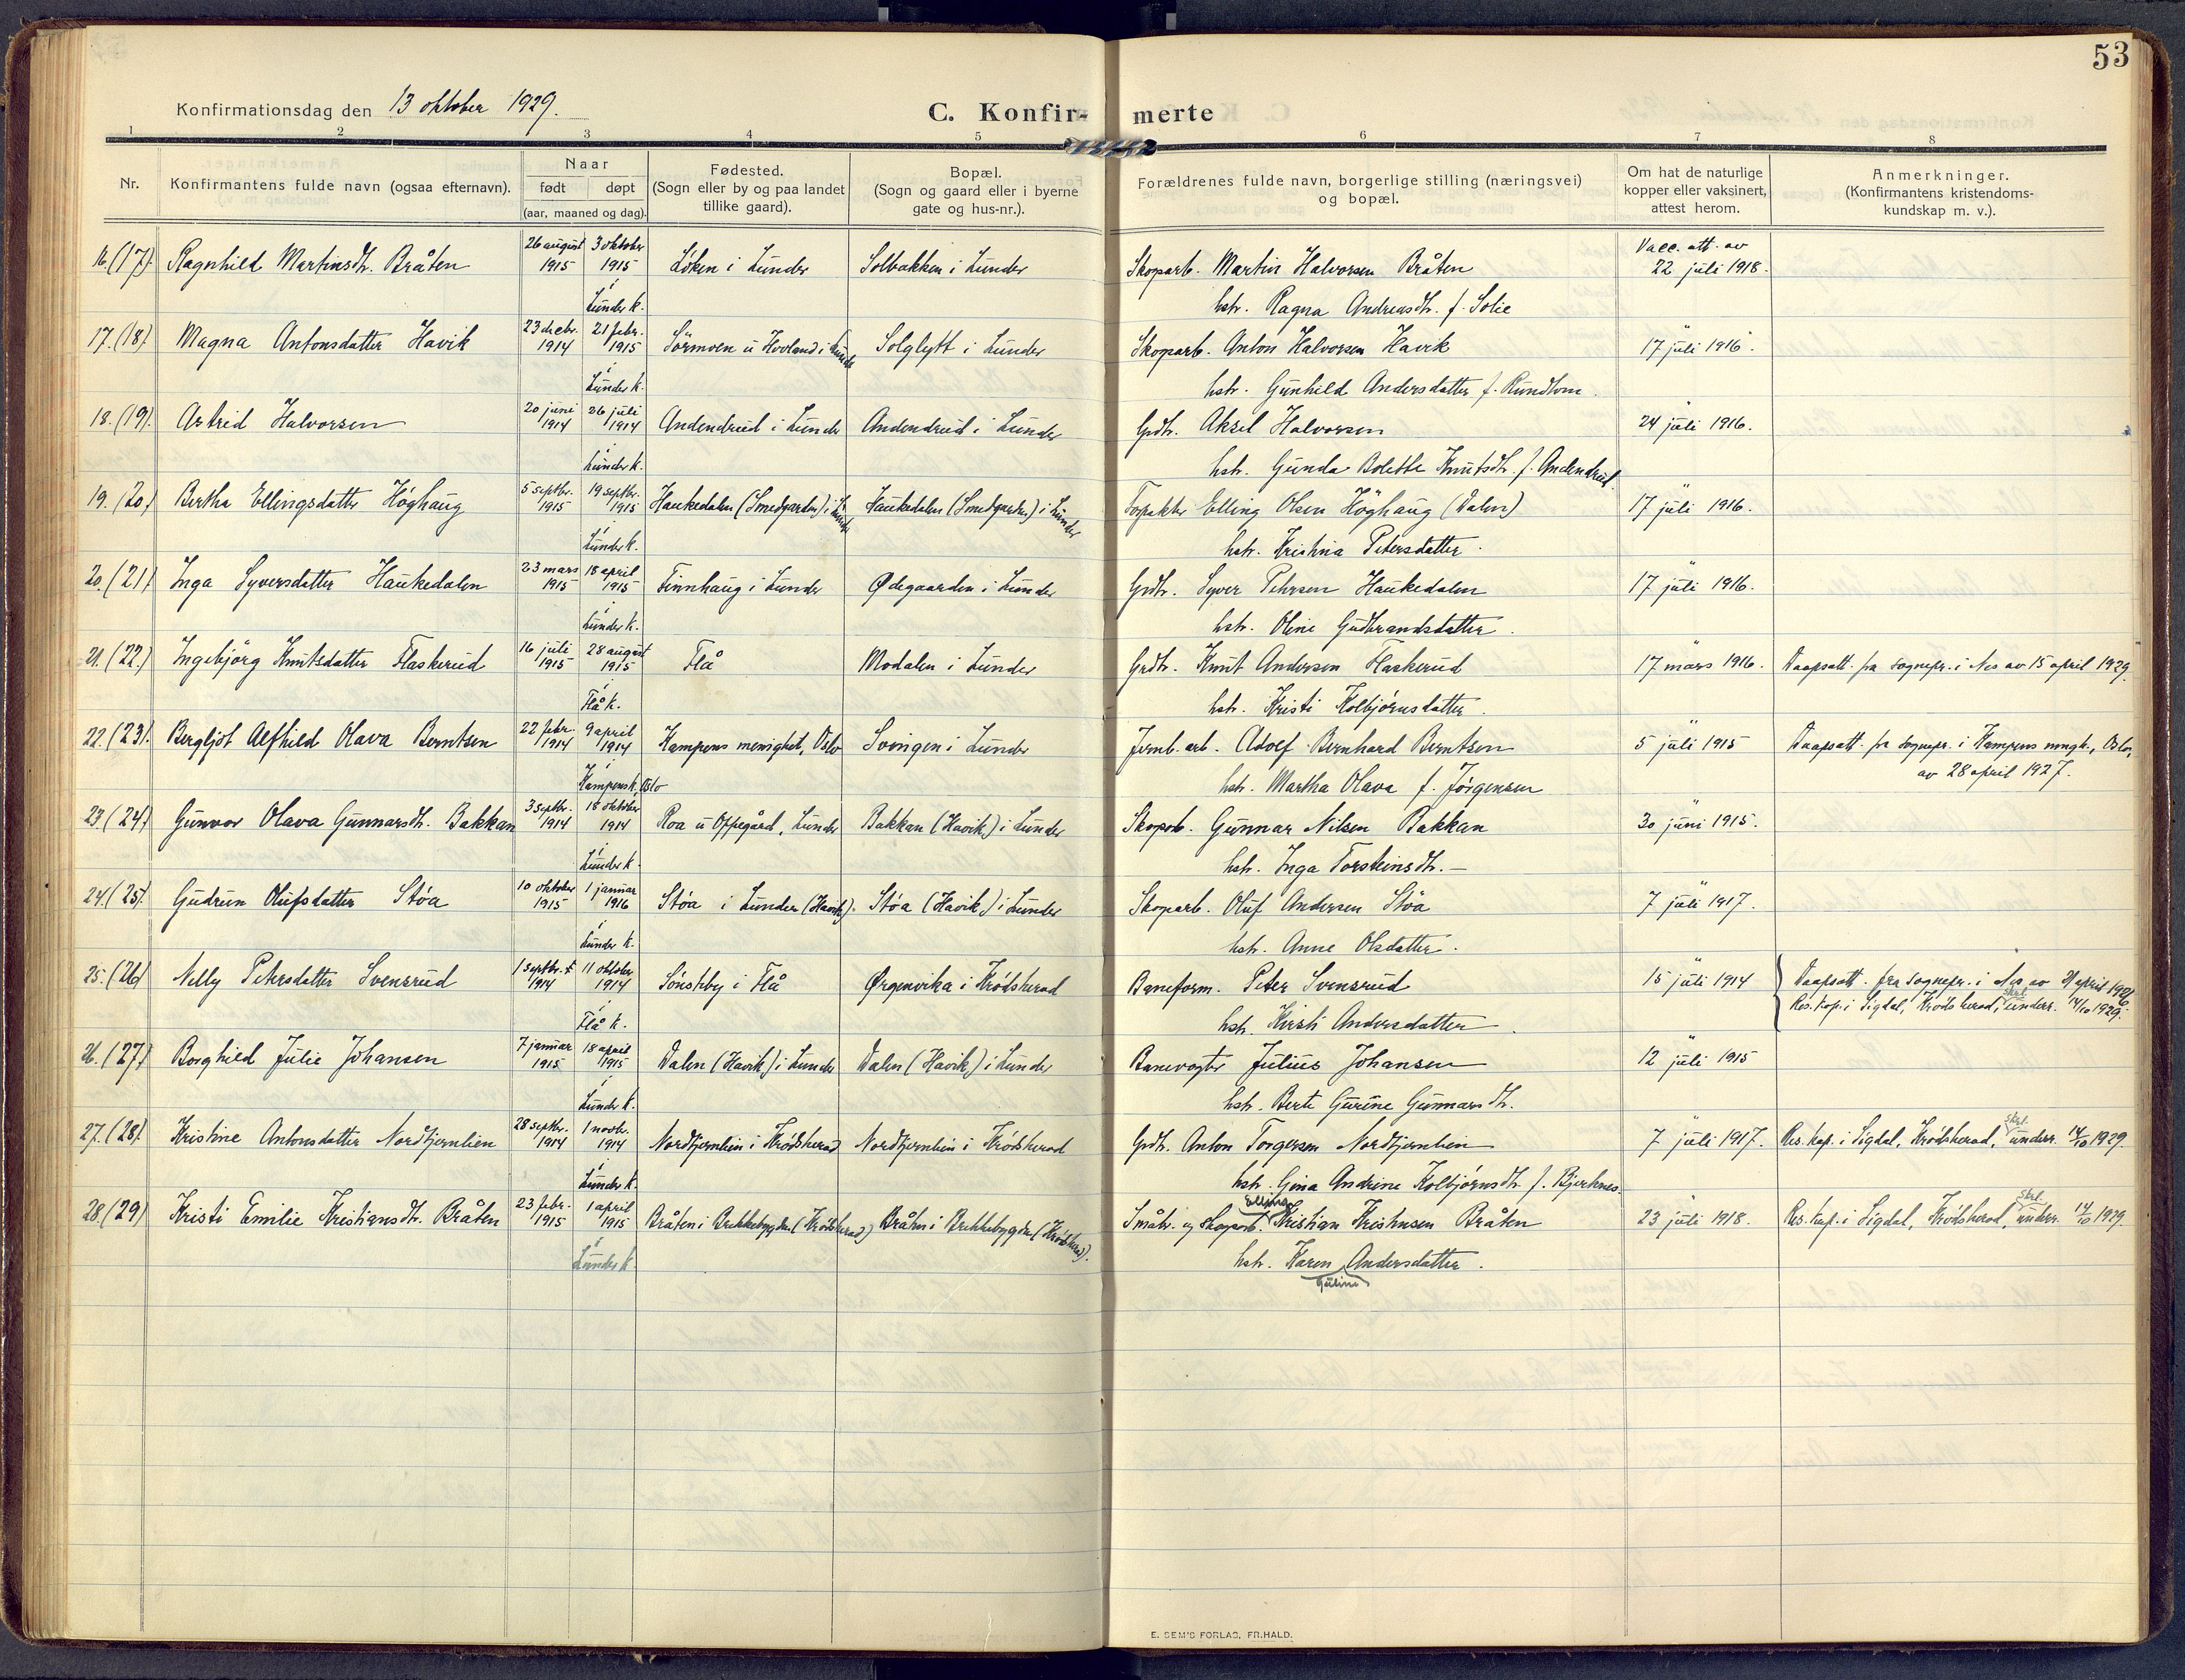 53
Konfirmationsdag den 13 oktober 1929.
C. Konfir- merte
1 2 3 4 5 6 7 8
Nr.
Konfirmantens fulde navn (ogsaa efternavn).
Naar
født døpt
(aar, maaned og dag).
Fødested.
(Sogn eller by og paa landet
tillike gaard).
Bopæl.
(Sogn og gaard eller i byerne
gate og hus-nr.).
Forældrenes fulde navn, borgerlige stilling (næringsvei)
og bopæl.
Om hat de naturlige
kopper eller vaksinert,
attest herom.
Anmerkninger.
(Konfirmantens kristendoms-
kundskap m. v.).
26 august 3 oktober Vacc. att. av
16.(17). Ragnhild Martinsdtr. Bråten 1915 1915 Løken i Lunder Solbakken i Lunder Skogarb. Martin Halvorsen Bråten 22 juli 1918.
i Lunder k. hstr. Ragna Andreasdtr. f. Solie
23 decbr. 21 febr.
17.(18). Magna Antonsdatter Havik 1914 1915 Sørmoen u Hovland i Lunder Solglytt i Lunder Skogarb. Anton Halvorsen Havik 17 juli 1916.
i Lunder k. hstr. Gunhild Andersdatter f. Rundtom.
20 juni 26 juli
18.(19). Astrid Halvorsen 1914 1914 Andendrud i Lunder Andendrud i Lunder Grdbr. Aksel Halvorsen 24 juli 1916.
i Lunder k. hstr. Gunda Bolette Knutsdtr. f. Andendrud.
5 septbr. 19 septbr.
19.(20) Bertha Ellingsdatter Høghaug 1915 1915 Haukedalen (Smedgarden) i Lunder Haukedalen (Smedgarden) i Lunder Elling Olsen Høghaug (Dalen) 17 juli 1916.
i Lunder k. hstr. Kristina Petersdatter.
23 mars 18 april
20.(21) Inga Syversdatter Haukedalen 1915 1915 Finnhaug i Lunder Ødegaarden i Lunder Grdbr. Syver Pehrsen Haukedalen 17 juli 1916.
i Lunder k. hstr. Oline Gudbrandsdatter.
16 juli 28 august
21.(22.) Ingebjørg Knutsdatter Flaskerud 1915 1915 Flå Modalen i Lunder Grdbr. Knut Andersen Flaskerud 17 mars 1916. Daapsatt. fra sognepr. i Nes av 15 april 1929.
i Flå k. hstr. Kristi Kolbjørnsdatter.
22 febr. 9 april
22.(23). Bergljot Alfhild Olava Berntsen 1914 1914 Kampens menighet, Oslo Svingen i Lunder Jernb. arb. Adolf Bernhard Berntsen 5 juli 1915 Daapsatt. fra sognepr. i Kampens mngh., Oslo,
i Kampens k. Oslo hstr. Martha Olava f. Jørgensen av 28 april 1927.
3 septbr. 18 oktober
23.(24.) Gunvor Olava Gunnarsdtr. Bakkan 1914 1914 Roa u Oppegård, Lunder Bakkan (Havik) i Lunder Skogarb. Gunnar Nilsen Bakkan 30 juni 1915.
i Lunder k. hstr. Inga Torsteinsdtr. —
10 oktober 1 januar
24.(25). Gudrun Olufsdatter Støa 1915 1916 Støa i Lunder (Havik). Støa (Havik) i Lunder Skogarb. Oluf Andersen Støa 7 juli 1917.
i Lunder k. hstr. Anne Olsdatter.
1 septbr. 11 oktober
25.(26) Nelly Petersdatter Svensrud 1914 1914 Sønsteby i Flå Ørgenvika i Krødsherad Baneform. Peter Svensrud 15 juli 1914 Daapsatt. fra sognepr. i Nes av april
i Flå k. hstr. Kirsti Andersdatter. Res. kap. i Sigdal, Krødsherad, skrl. underr. 14/10 1929.
7 januar 18 april
26.(27.) Borghild Julie Johansen 1915 1915 Dalen (Havik) i Lunder Dalen (Havik) i Lunder Banevogter Julius Johansen 12 juli 1915
i Lunder k. hstr. Berte Gurine Gunnarsdtr.
28 septbr. 1 novbr.
27.(28). Kristine Antonsdatter Nordtjernlien 1914 1914 Nordtjernlien i Krødsherad Nordtjernlien i Krødsherad Grdbr. Anton Torgersen Nordtjernlien 7 juli 1917. Res. kap. i Sigdal, Krødsherad, skrl. underr. 14/10 1929.
i Lunder k. hstr. Gina Andrine Kolbjørnsdtr. f. Bjerknes.
23 febr. 1 april Elling
28.(29) Kristi Emilie Kristiansdtr. Bråten 1915 1915 Bråten i Bukkebygden (Krødsherad) Bråten i Bukkebygden (Krødsherad). Småbr. og Skogarb. Kristian Kristensen Bråten 23 juli 1918. Res. kap. i Sigdal, Krødsherad, skrl. underr. 14/10 1929
i Lunder k. hstr. Karen Andersdatter.
Guline
E. SEM'S FORLAG, FR.HALD.